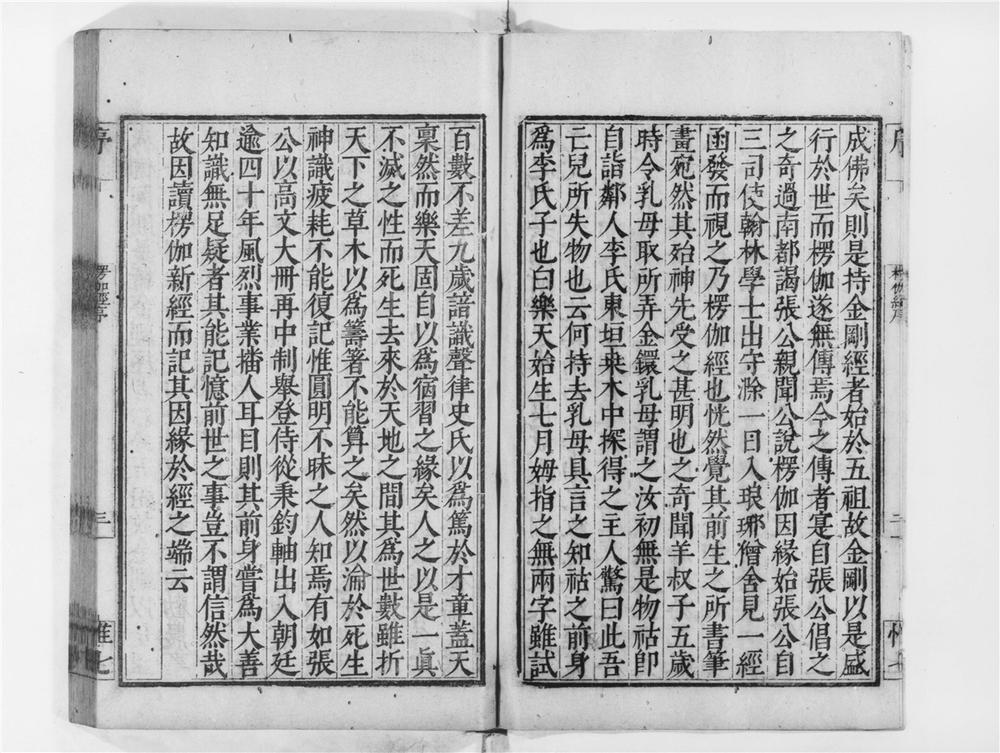 成佛矣則是持金剛經者始於五祖故金剛以是盛
行於世而楞伽遂無傳焉今之傳者寔自張公倡之
之奇過南都謁張公親聞公說楞伽因緣始張公自
三司使翰林學士出守滁一日入琅琊僧舍見一經
函發而視之乃楞伽經也恍然覺其前生之所書筆
畫宛然其殆神先受之甚明也之奇聞羊叔子五歲
時令乳母取所弄金鐶乳母謂之汝初無是物祜即
自詣鄰人李氏東垣桒木中探得之主人驚曰此吾
亡兒所失物也云何持去乳母具言之知祜之前身
為李氏子也白樂天始生七月姆指之無兩字雖試
百數不差九歲諳識聲律史氏以為篤於才章蓋天
稟然而樂天固自以為宿習之緣矣人之以是一真
不滅之性而死生去來於天地之間其為世數雖折
天下之草木以為籌箸不能算之矣然以淪於死生
神識疲耗不能復記惟圓明不昧之人知焉有如張
公以高文大冊再中制舉登侍從秉鈞軸出入朝廷
逾四十年風烈事業播人耳目則其前身嘗為大善
知識無足疑者其能記憶前世之事豈不謂信然哉
故因讀楞伽新經而記其因緣於經之端云
楞伽經序
三
惟七